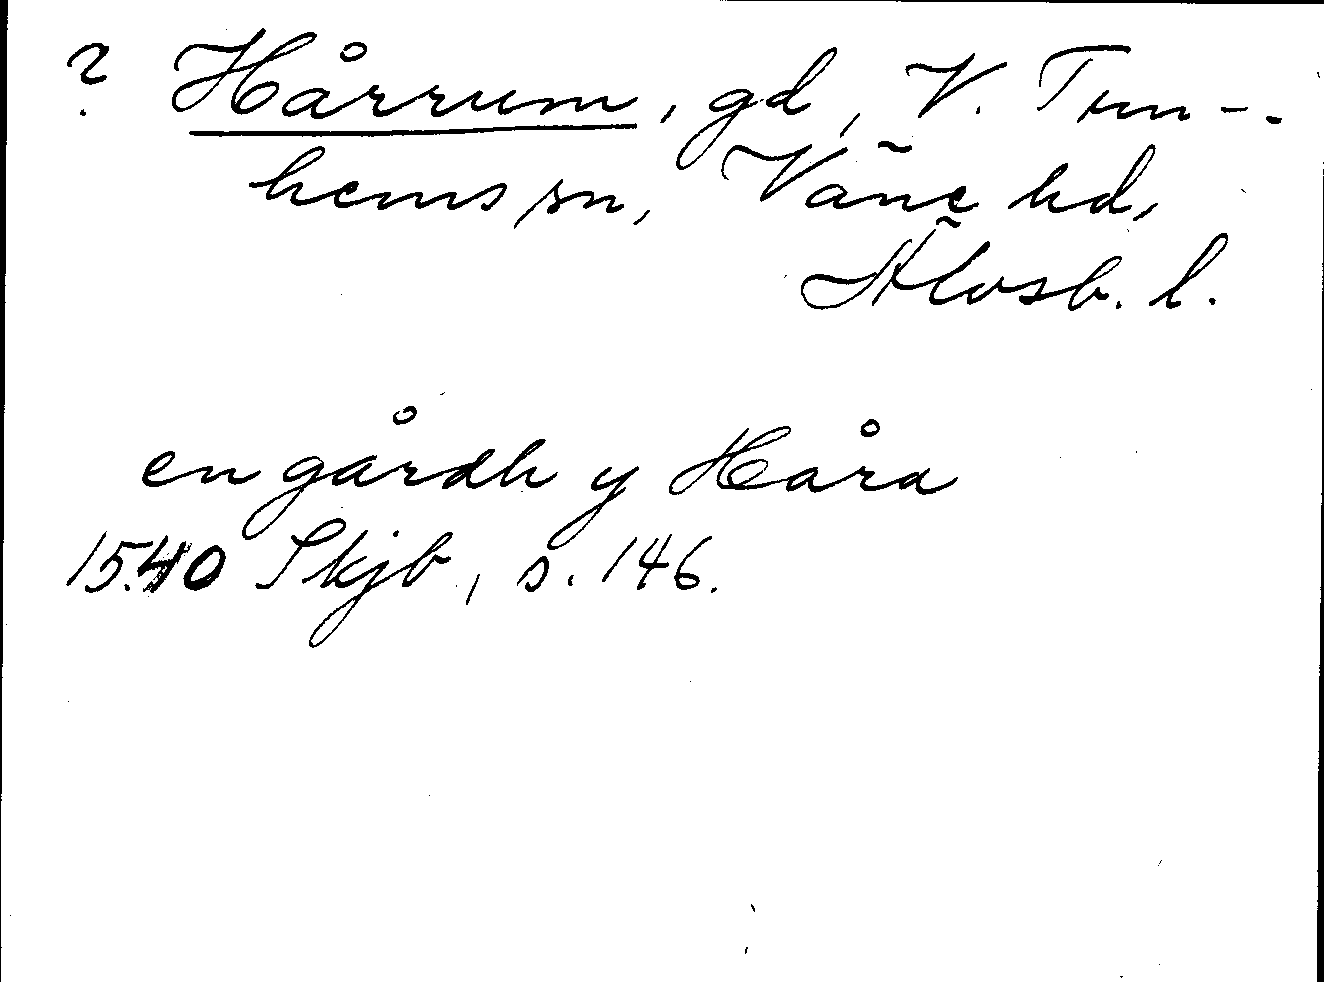 ? Hårrum, gd, V. Tun-
hems sn, Väne hd,
Älvsb. l.
en gårdh y Håra
1540 Skjb, s. 146.